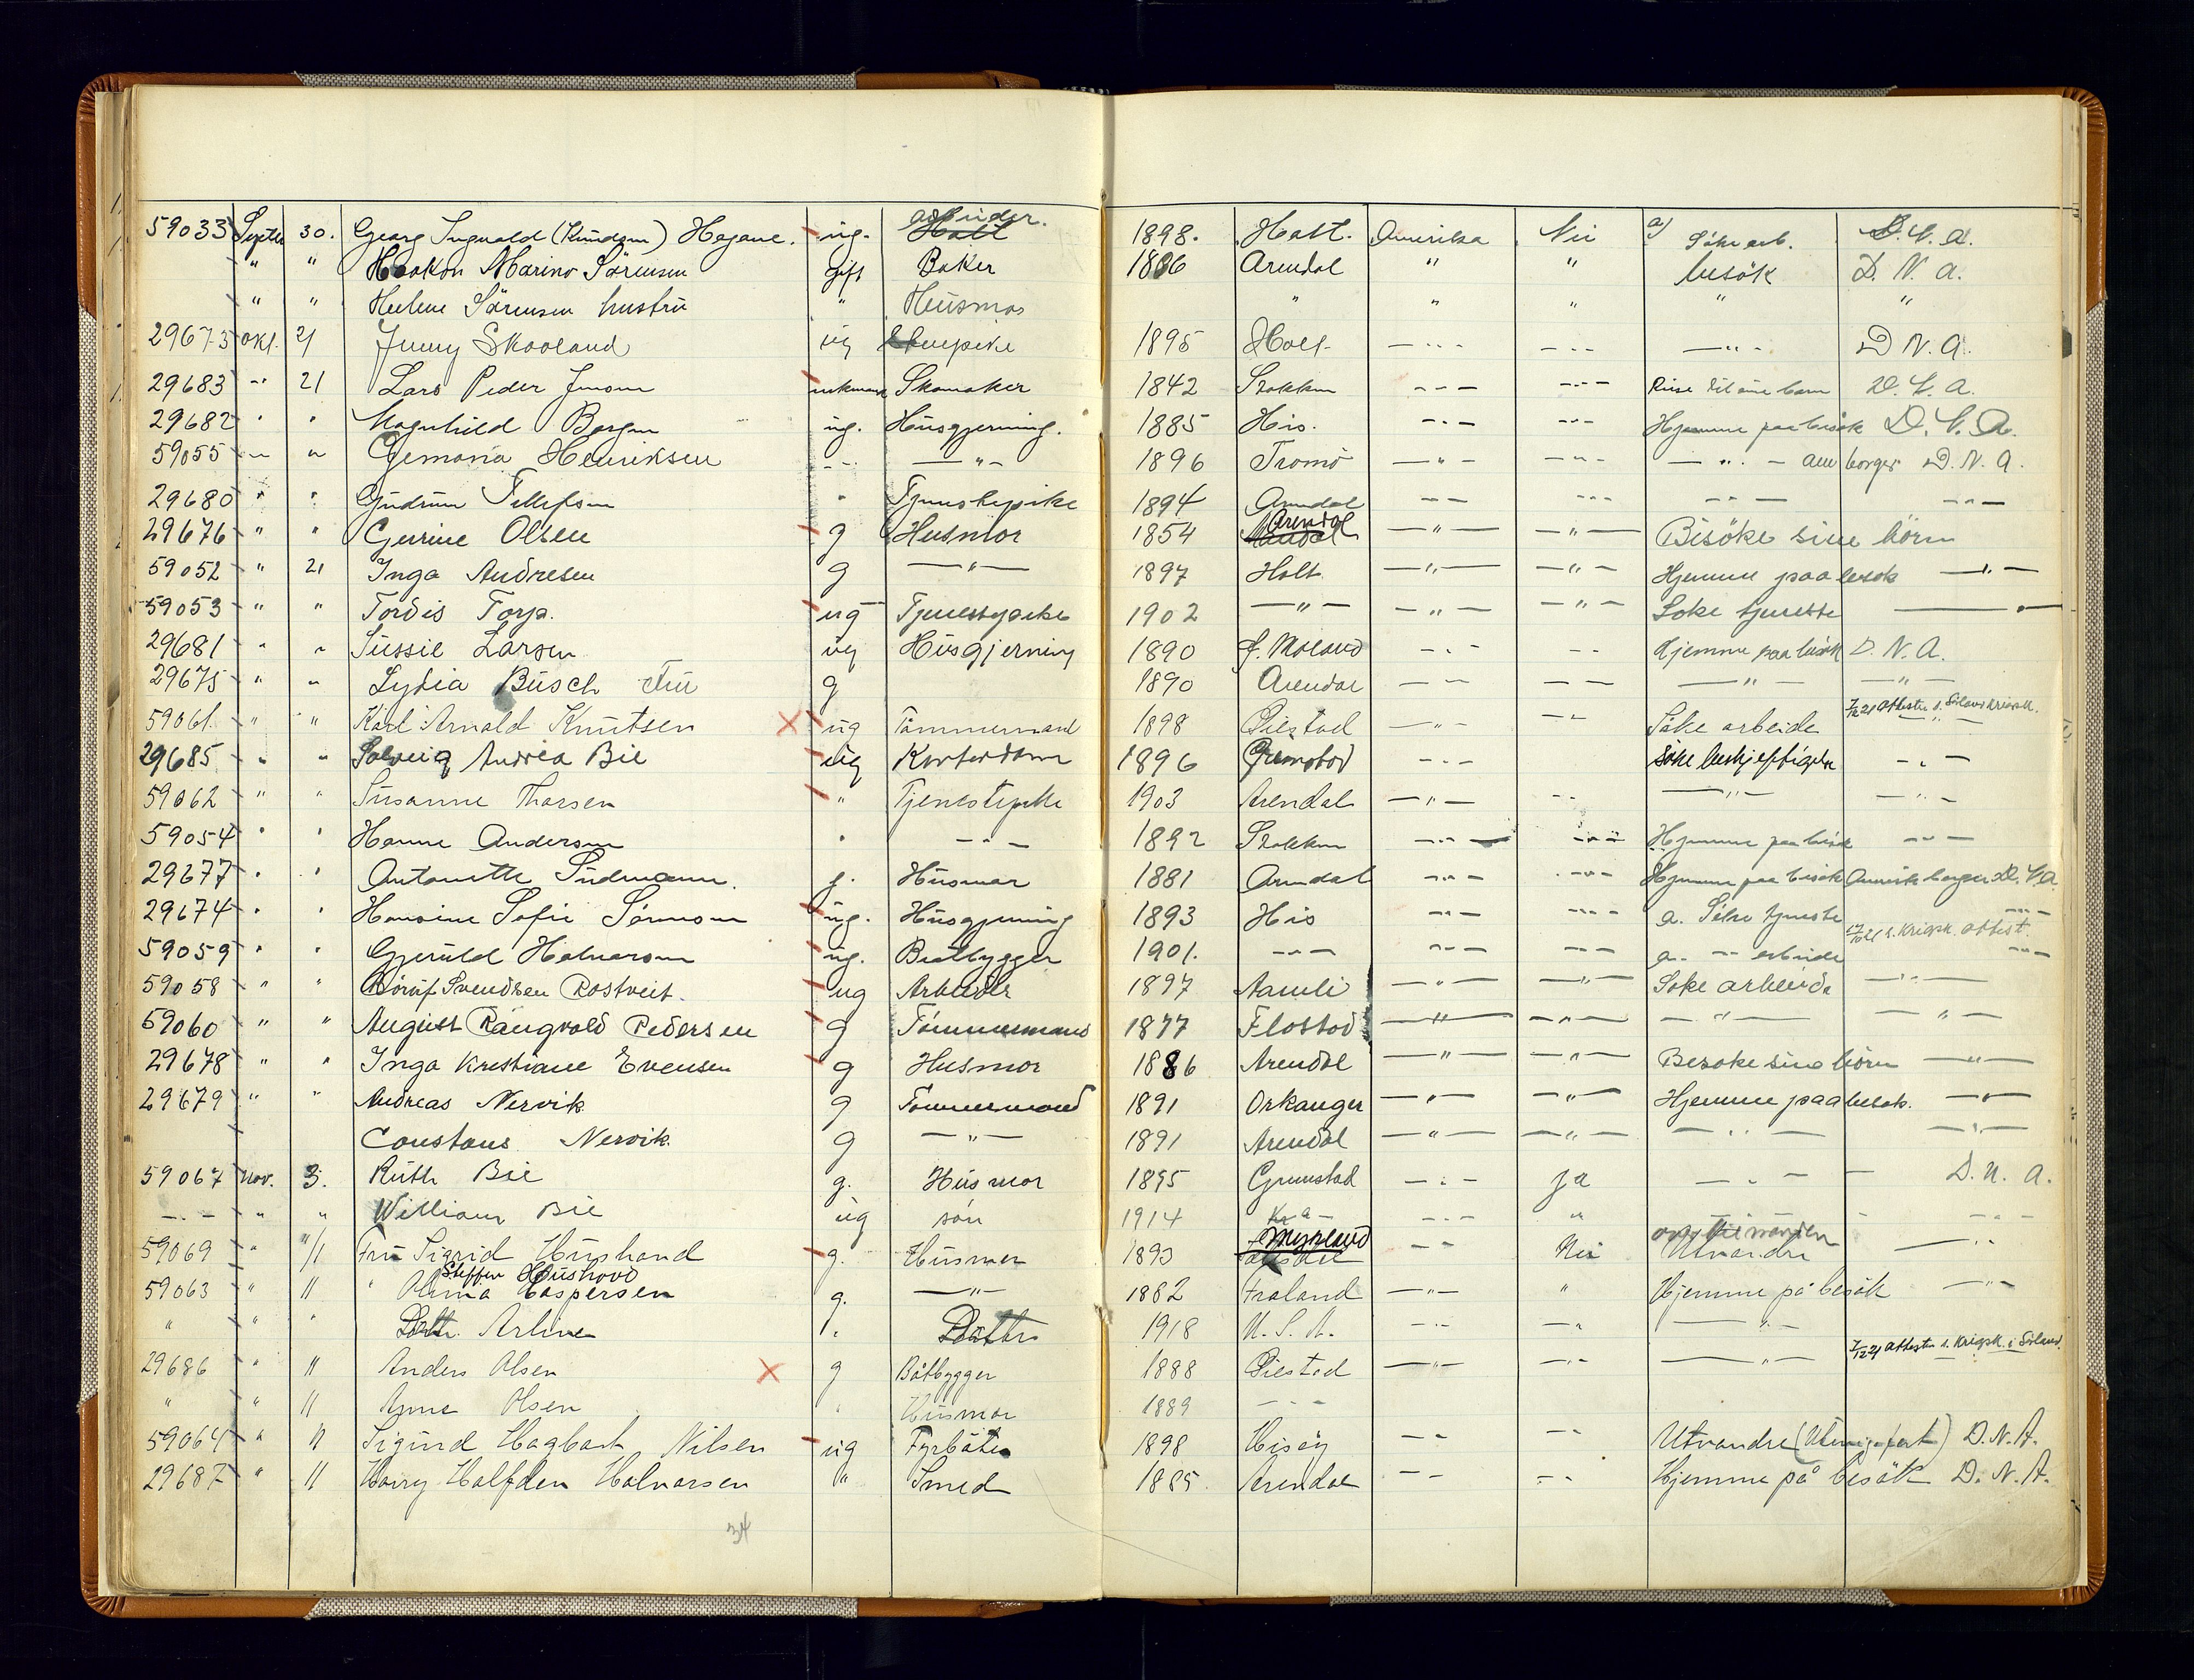 59033 Septbr 30. Georg Ingvald (Knudsen) Hegane. ug. arbeider. Holt 1898. Holt. Amerika Nei a) Söke arb. D. N. A.
" " Haakon Marino Sörensen gift Baker 1886 Arendal " " besök D. N. A.
" " Helene Sörensen hustru " Husmor " " " " "
29673 Okt. 21 Jenny Skaaland ug 1895 Holt - " - - " - - " - D. N. A.
29683 - " 21 Lars Peder Jensen enkemand Skomaker 1842 Stokken - " - - " - Reise til sine barn D. N. A.
29682 " " Magnhild Bergen ug. Husgjerning. 1885 His. - " - - " - Hjemme paa besök D. N. A.
59055 " " Gemaria Henriksen - " - - " - 1896 Tromö - " - - " - - " - am borger D. N. A.
29680 " " Gudrun Tellefsen " Tjenestepike 1894 Arendal - " - - " - - " - - " -
29676 " " Gurine Olsen g Husmor 1854 Arendal - " - - " - Besöke sine börn
59052 " 21 Inga Andresen g - " - 1897 Holt - " - - " - Hjemme paa besök - " -
59053 " " Tordis Torp. ug Tjenestepike 1902 - " - - " - - " - Söke tjeneste - " -
29681 " " Sussie Larsen ug Husgjerning 1890 ö. Moland - " - - " - Hjemme paa besök D. N. A.
29675 " " Lydia Busch Fru g 1890 Arendal - " - - " - - " - - " -
59061. " " Karl Arnold Knutsen X ug Tömmermand 1898 Öiestad - " - - " - Söke arbeide 7/12 21 Attester s. Sörland Krigsk. - " -
29685 " " Solveig Andrea Bie ug Kontordame 1896 Grimstad - " - söke beskjeftigelse - " -
59062 " " Susanne Thorsen " Tjenestepike 1903 Arendal - " - - " - - " - - " -
59054 " " Hanne Andersen " - " - 1892 Stokken - " - - " - Hjemme paa besök - " -
29677 " " Antonette Sudmann. g. Husmor 1881 Arendal - " - - " - Hjemme paa besök Amerik borger D. N. A.
29674 " " Hansine Sofie Sörensen ug. Husgjerning 1893 His - " - - " - a. Söke tjeneste - " -
59059 " " Gjeruld Halvorsen ug. Baatbygger 1901. - " - - " - - " - a. - " - arbeide 17/10 21 s. Krigsk. attest. - " -
59058 " " Svendsen Rostveit. ug Arbeider 1897 Aamli - " - - " - Söke arbeide - " -
59060 " " August Rangvald Pedersen g Tömmermand 1877 Flostad - " - - " - - " - - " -
29678 " " Inga Kristiane Evensen g Husmor 1886 Arendal - " - - " - Besöke sine börn - " -
29679 " " Andreas Nervik g Tömmermand 1891 Orkanger - " - - " - Hjemme paa besök. - " -
Constans Nervik g - " - 1891 Arendal - " - - " - - " - - " -
59067 Nov. 3. Ruth Bie g. Husmor 1895 Grimstad - " - ja - " - D. N. A.
- " - " " William Bie ug sön 1914 Kr a - - " - " - " -
59069 " 11/1 Fru Sigrid Hushovd g. Husmor 1893 Myrland - " - Nei Utvandre - " -
Steffen Hushovd
59063 " 11 " Anna Caspersen g. - " - 1882 Froland - " - " Hjemme på besök - " -
" " " Dattr. Arline " Datter 1918 U. S. A. - " - - " - " -
29686 " 11 Anders Olsen X g Båtbygger 1888 Öiestad - " - - " - - " - 7/12 21 Attester s. Krigsk. i Sörland.
" " 11 Anne Olsen " Husmor 1889 - " -
59064 " 11 Sigurd Hagbart Nilsen ug Fyrböter 1898 Hisöy - " - - " - Utvandre D. N. A.
29687 " 11 Harry Halfdan Halvorsen " Smed 1885. Arendal - " - - " - Hjemme på besök D. N. A.
34